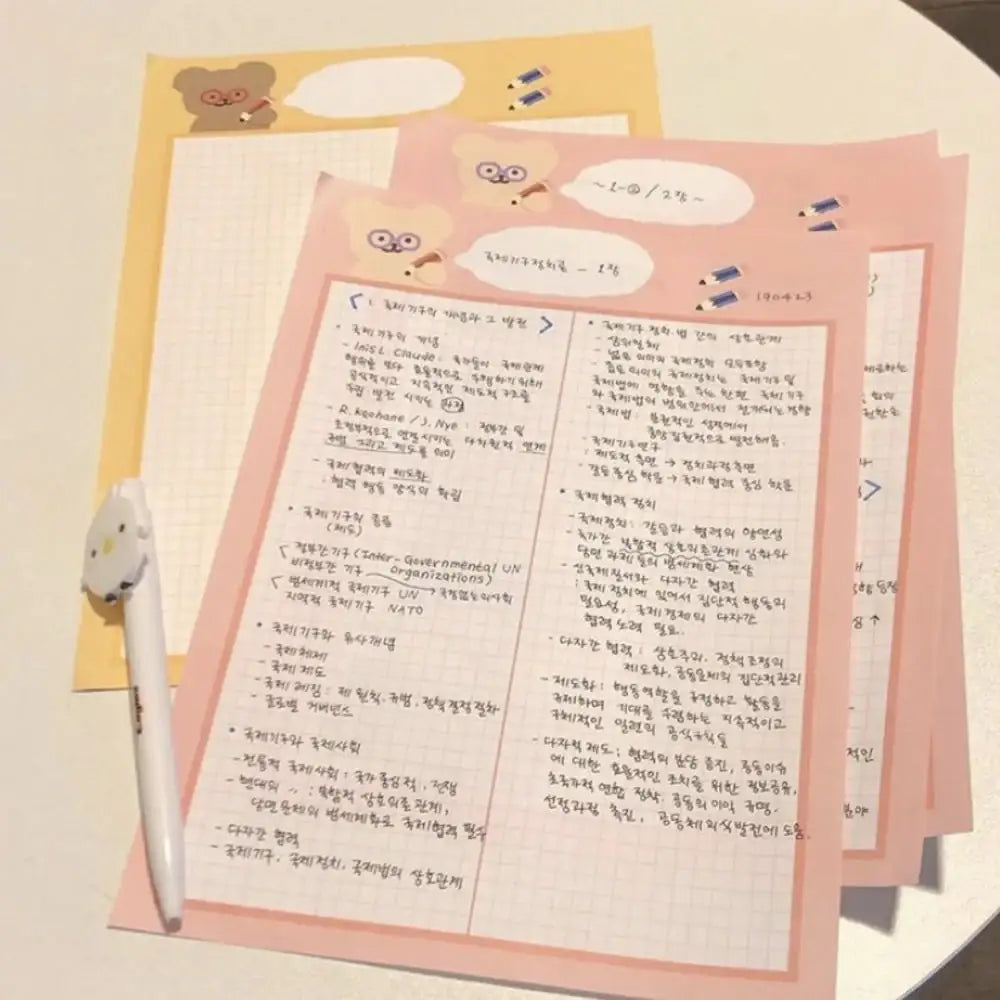 ~ 1-② / 2장 ~
국제기구정치론 - 1장
190423
< 1. 국제기구의 개념과 그 발전 >
• 국제기구의 개념
- Inisl. Claude : 국가들이 국제관계
행위를 보다 효율적으로 수행하기 위해
공식적이고 지속적인 제도적 구조를
수립 발전 시키는 과정
- R. Keohane / J. Nye : 정부간 및
초정부적으로 연결시키는 다차원적 연계
규범 그리고 제도를 의미
- 국제협력의 제도화
: 협력 행동 양식의 확립
• 국제기구의 종류
(제도)
정부간기구 (Inter-Governmental UN
비정부간 기구 Organizations)
→ 국경없는의사회
범세계적 국제기구 UN
지역적 국제기구 NATO
• 국제기구와 유사개념
- 국제체제
- 국제 제도
- 국제 레짐 : 제 원칙, 규범, 정책결정절차
- 글로벌 거버넌스
• 국제기구와 국제사회
- 전통적 국제사회 : 국가중심적, 전쟁
- 현대의 〃 : 복합적 상호의존관계,
당면문제의 범세계화로 국제협력 필수
- 다자간 협력
- 국제기구, 국제정치, 국제법의 상호관계
• 국제기구·정치·법 간의 상호관계
- 삼위일체
- 넓은 의미의 국제정치
- 좁은 의미의 국제정치는 국제기구 및
국제법에 영향을 주는 한편 국제기구
와 국제법의 범위안에서 전개되는 경향
- 국제법 : 분권적인 성격에서
중앙집권적으로 발전해옴.
- 국제기구연구
: 제도적 측면 → 정치과정측면
- 갈등중심 학문 → 국제협력 중심 학문
• 국제협력 정치
- 국제정치 : 갈등과 협력의 양면성
- 국가간 복합적 상호의존관계 심화와
당면 과제들의 범세계화 현상
- 신국제질서와 다자간 협력
: 국제 정치에 있어서 집단적 행동의
필요성, 국제경제의 다자간
협력 노력 필요.
- 다자간 협력 : 상호주의, 정책조정의
제도화, 공동문제의 집단적관리
- 제도화 : 행동역할을 규정하고 활동을
규제하며 기대를 수렴하는 지속적이고
구체적인 일련의 공식규칙들
- 다자적 제도 : 협력의 분담 증진, 공동이슈
에 대한 효율적인 조치를 위한 정보공유,
초국가적 연합 정착, 공동의 이익 규명,
선정과정 촉진, 공동체의식발전에 도움.
적인
분야